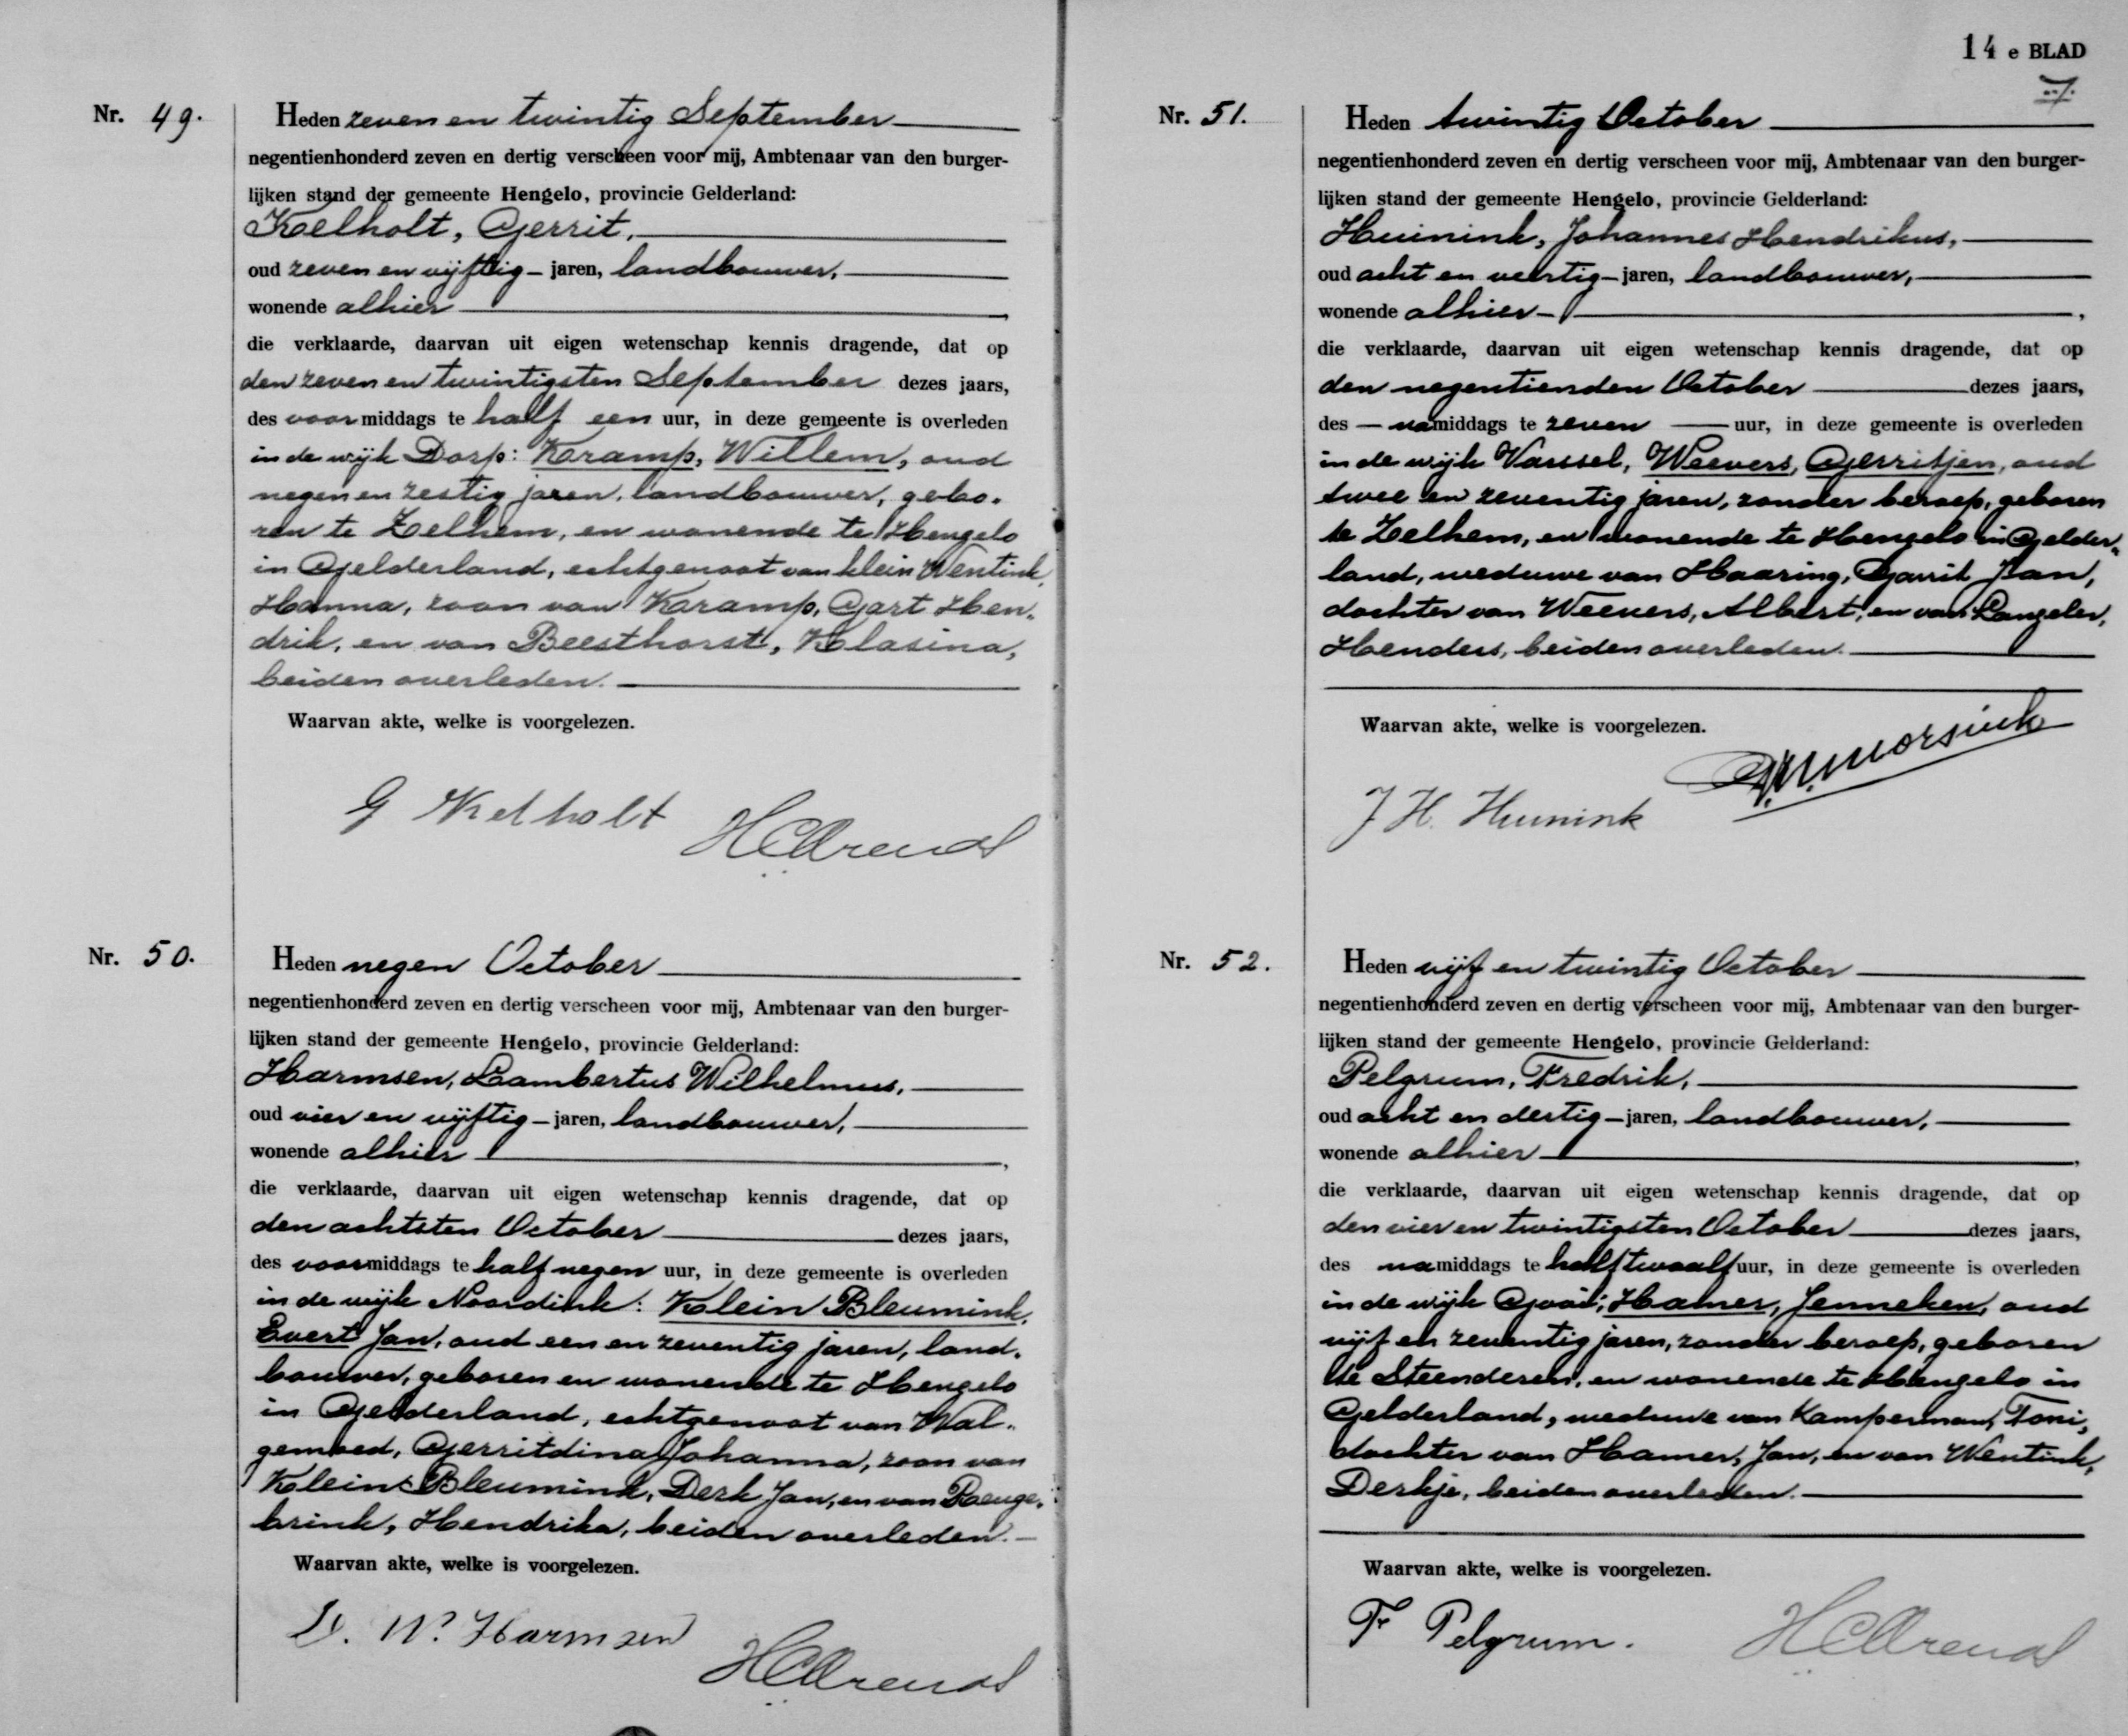 Nr. 49.
Heden zeven en twintig September
negentienhonderd zeven en dertig verscheen voor mij, Ambtenaar van den burger-
lijken stand der gemeente Hengelo, provincie Gelderland:
Kelholt, Gerrit,
oud zeven en vijftig - jaren, landbouwer,
wonende alhier ,
die verklaarde, daarvan uit eigen wetenschap kennis dragende, dat op
den zeven en twintigsten September dezes jaars,
des voormiddags te half een uur, in deze gemeente is overleden
in de wijk Dorp: Kramp, Willem, oud
negen en zestig jaren, landbouwer, gebo-
ren te Zelhem, en wonende te Hengelo
in Gelderland, echtgenoot van klein Wentink,
Hanna, zoon van Kramp, Gart Hen-
drik, en van Beesthorst, Klasina,
beiden overleden.
Waarvan akte, welke is voorgelezen.
G
HCArends
Nr. 50.
Heden negen October
negentienhonderd zeven en dertig verscheen voor mij, Ambtenaar van den burger-
lijken stand der gemeente Hengelo, provincie Gelderland:
Harmsen, Lambertus Wilhelmus,
oud vier en vijftig - jaren, landbouwer,
wonende alhier ,
die verklaarde, daarvan uit eigen wetenschap kennis dragende, dat op
den achtsten October dezes jaars,
des voormiddags te half negen uur, in deze gemeente is overleden
in de wijk Noordink: Klein Bleumink,
Evert Jan, oud een en zeventig jaren, land-
bouwer, geboren en wonende te Hengelo
in Gelderland, echtgenoot van Wal-
gemoed, Gerritdina Johanna, zoon van
Klein Bleumink, Derk Jan, en van
brink, Hendrika, beiden overleden.
Waarvan akte, welke is voorgelezen.
L. W. Harmsen
HCArends
14 e BLAD
Nr. 51.
Heden twintig October
negentienhonderd zeven en dertig verscheen voor mij, Ambtenaar van den burger-
lijken stand der gemeente Hengelo, provincie Gelderland:
Huinink, Johannes Hendrikus,
oud acht en veertig - jaren, landbouwer,
wonende alhier - ,
die verklaarde, daarvan uit eigen wetenschap kennis dragende, dat op
den negentienden October dezes jaars,
des — namiddags te zeven — uur, in deze gemeente is overleden
in de wijk Varssel, Weevers, Gerritjen, oud
twee en zeventig jaren, zonder beroep, geboren
te Zelhem, en wonende te Hengelo in Gelder-
land, weduwe van Haaring, Garrit Jan,
dochter van Weevers, Albert, en van Langeler,
Henders, beiden overleden.
Waarvan akte, welke is voorgelezen.
J H. Huinink
Nr. 52.
Heden vijf en twintig October
negentienhonderd zeven en dertig verscheen voor mij, Ambtenaar van den burger-
lijken stand der gemeente Hengelo, provincie Gelderland:
Pelgrum, Fredrik,
oud acht en dertig - jaren, landbouwer,
wonende alhier ,
die verklaarde, daarvan uit eigen wetenschap kennis dragende, dat op
den vier en twintigsten October dezes jaars,
des namiddags te half twaalf uur, in deze gemeente is overleden
in de wijk Gooi; Hamer, Jenneken, oud
vijf en zeventig jaren, zonder beroep, geboren
te Steenderen, en wonende te Hengelo in
Gelderland, weduwe van Kamperman, Toni,
dochter van Hamer, Jan, en van Wentink,
Derkje, beiden overleden.
Waarvan akte, welke is voorgelezen.
F Pelgrum.
HCArends